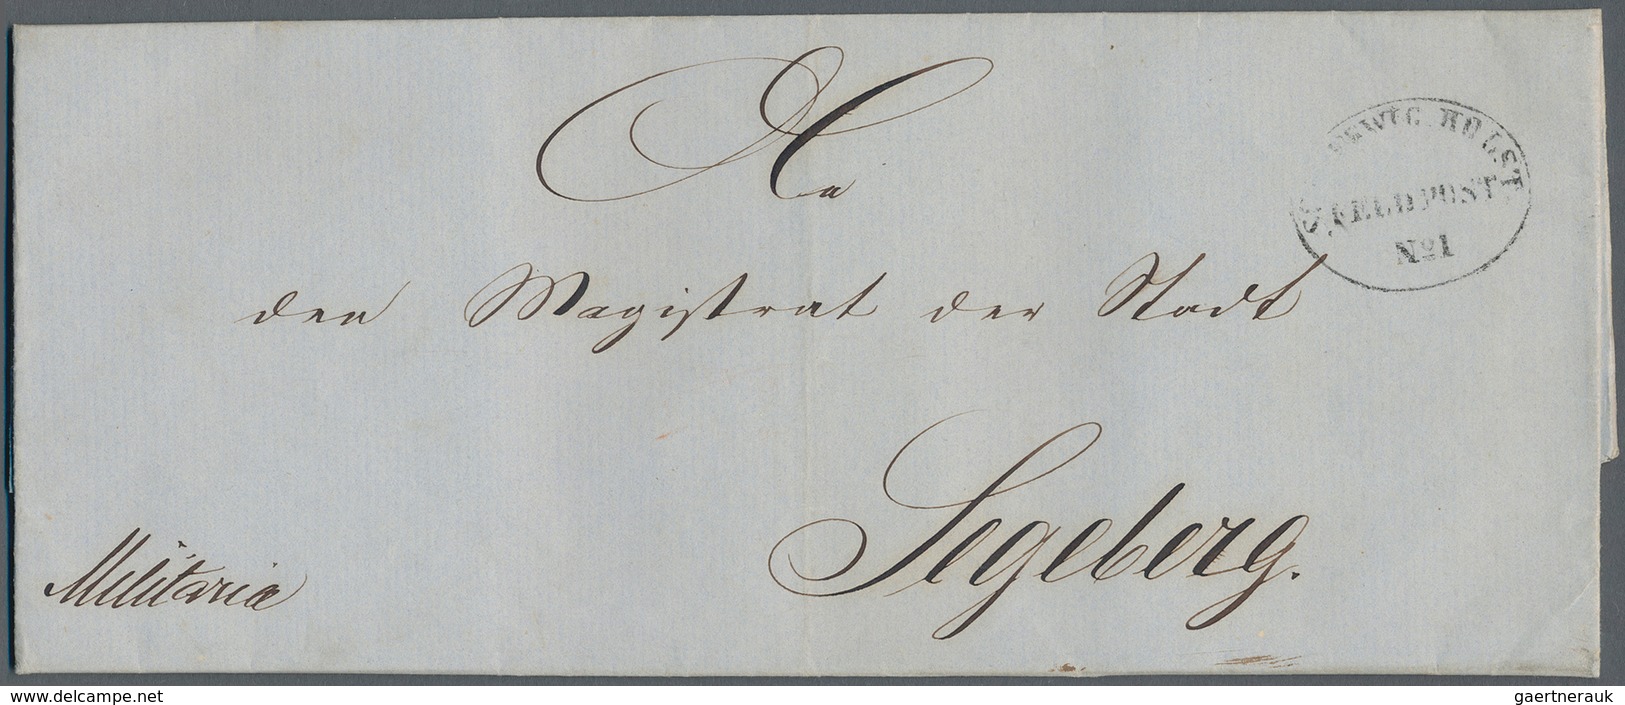 An
SCHLESWIG. HOLST.
FELDPOST.
No 1
den Magistrat der Stadt
Segeberg.
Militaria
www.delcampe.net
gaertnerauk